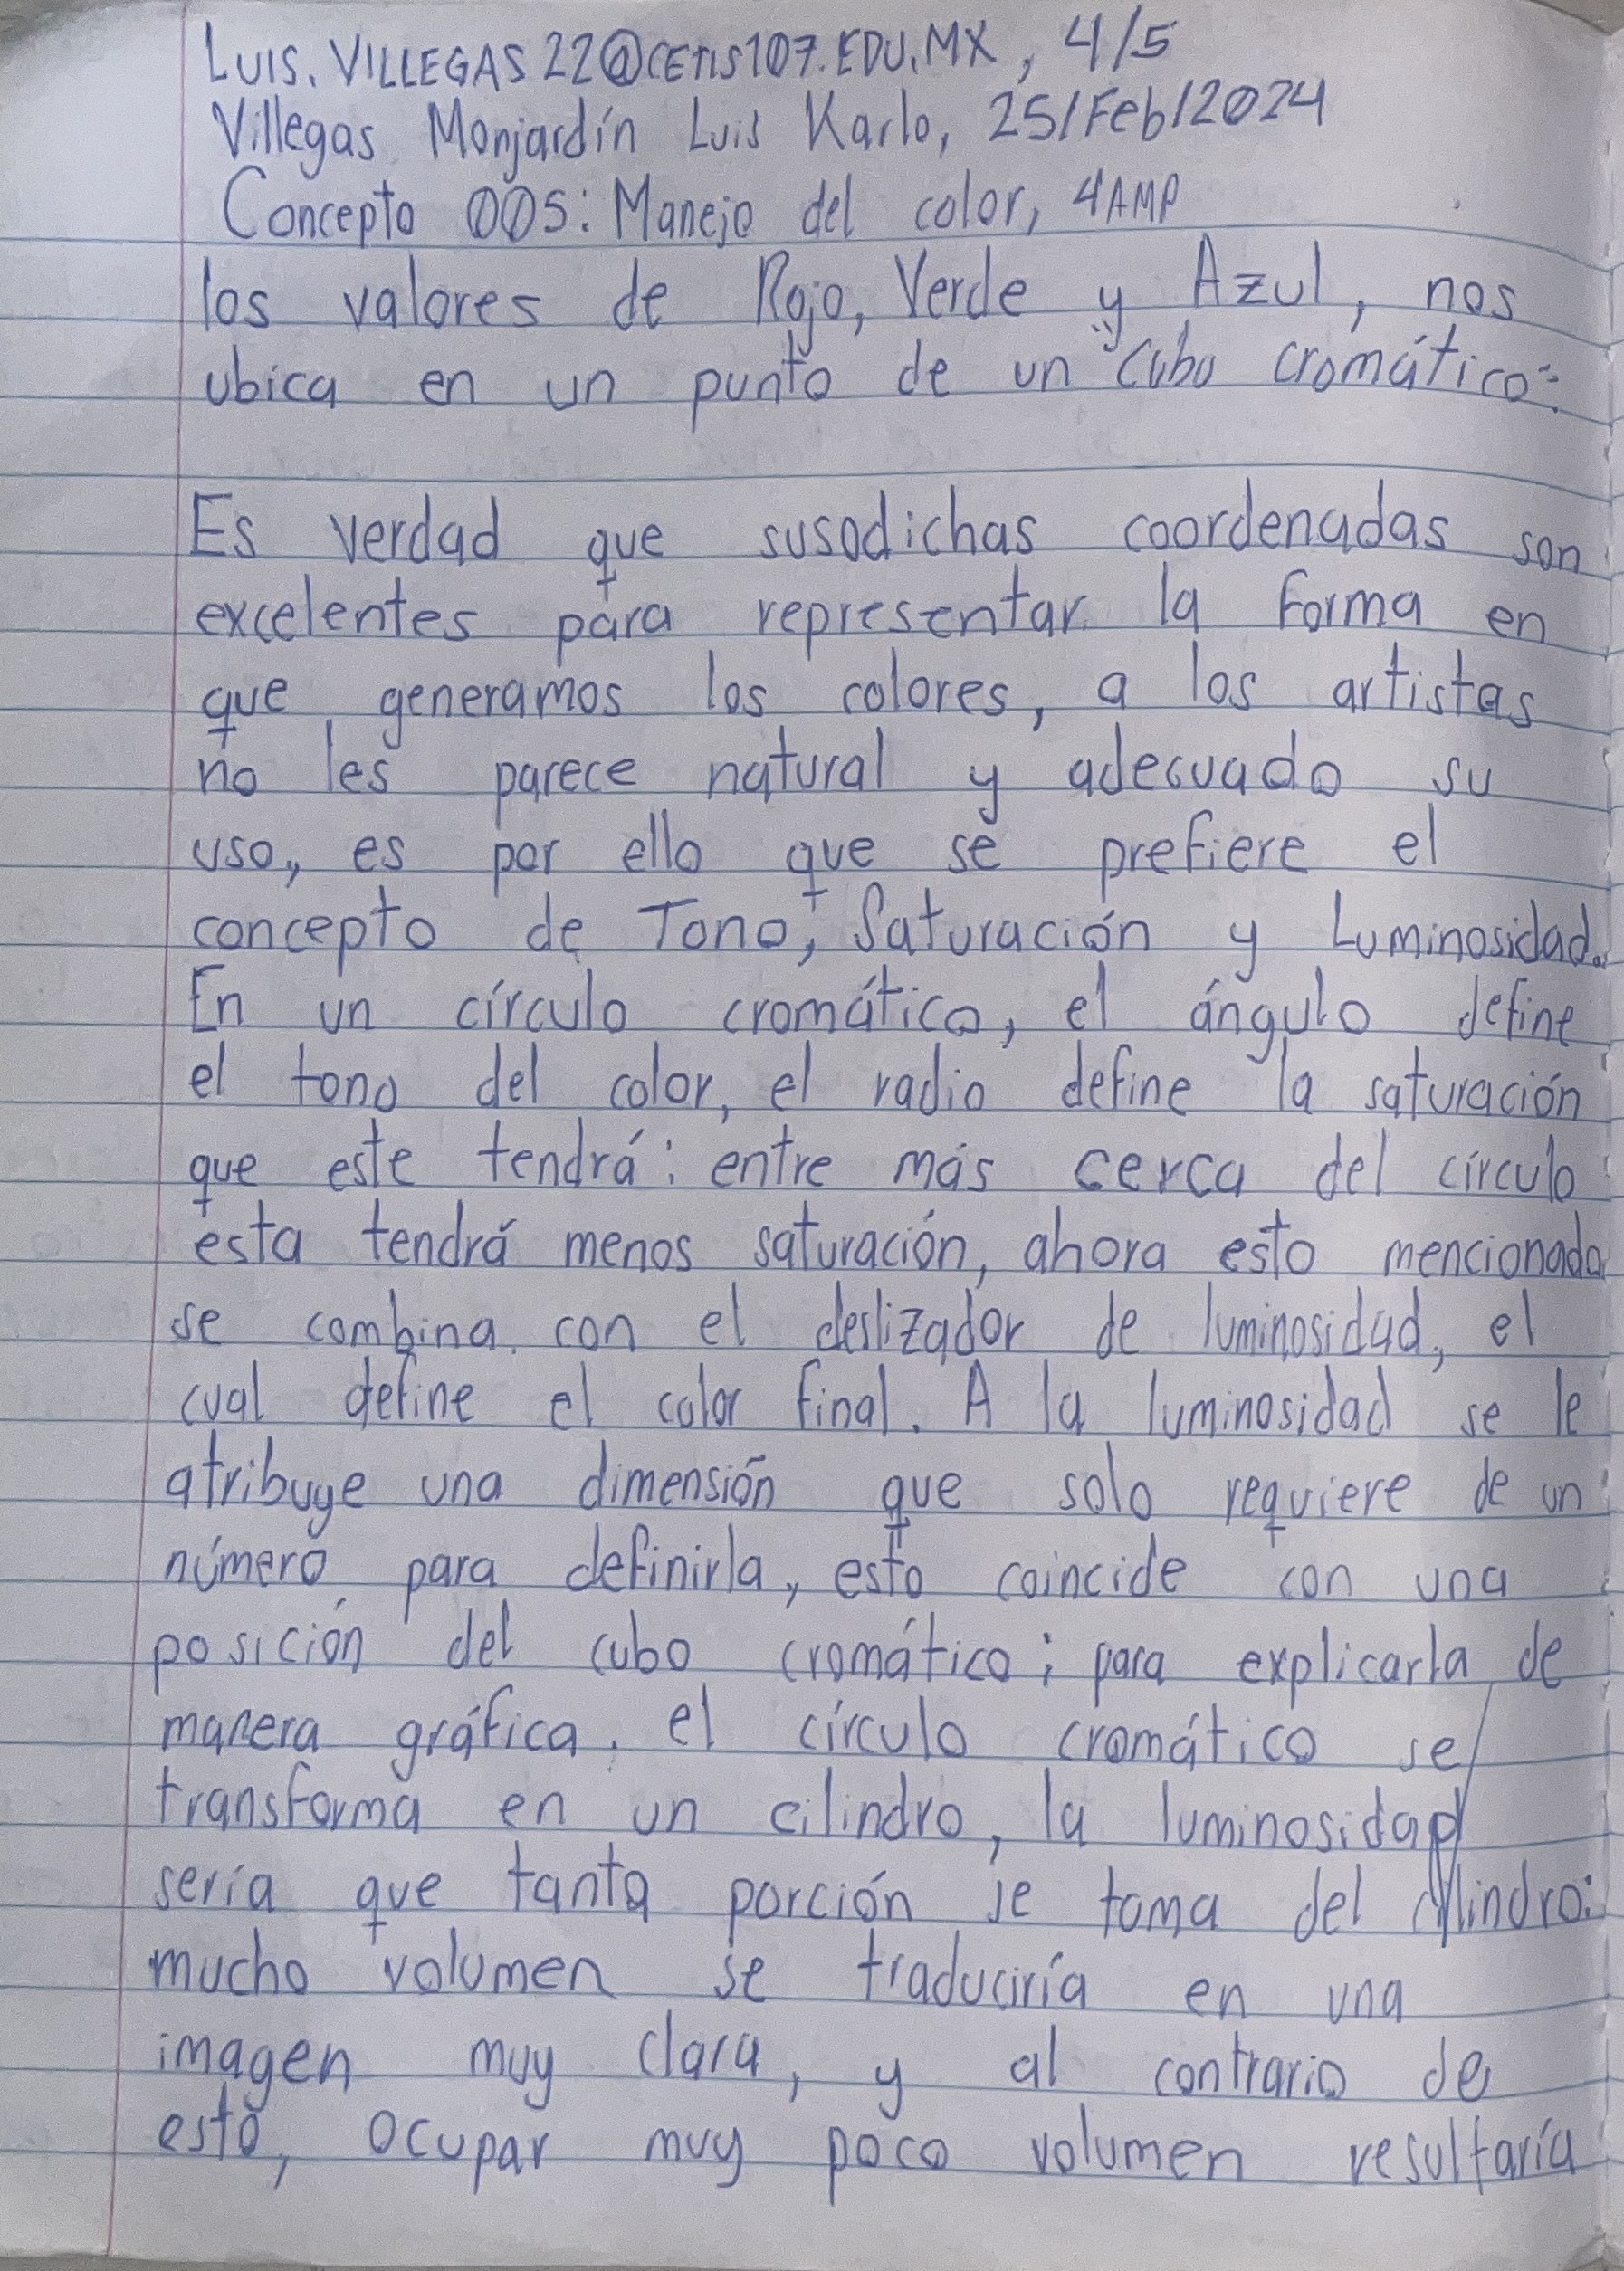 LUIS.VILLEGAS22@CETIS107.EDU.MX, 4/5
Villegas Monjardín Luis Karlo, 25/Feb/2024
Concepto 005: Manejo del color, 4AMP
los valores de Rojo, Verde y Azul, nos
ubica en un punto de un "cubo cromático".
Es verdad que susodichas coordenadas son
excelentes para representar la forma en
que generamos los colores, a los artistas
no les parece natural y adecuado su
uso, es por ello que se prefiere el
concepto de Tono, Saturación y Luminosidad.
En un círculo cromático, el ángulo define
el tono del color, el radio define la saturación
que este tendrá: entre más cerca del círculo
esta tendrá menos saturación, ahora esto mencionado
se combina con el deslizador de luminosidad, el
cual define el color final. A la luminosidad se le
atribuye una dimensión que solo requiere de un
número para definirla, esto coincide con una
posición del cubo cromático; para explicarla de
manera gráfica, el círculo cromático se
transforma en un cilindro, la luminosidad
sería que tanta porción se toma del cilindro:
mucho volumen se traduciría en una
imagen muy clara, y al contrario de
esto, ocupar muy poco volumen resultaría